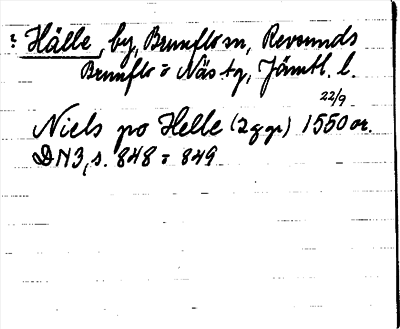 ? Hälle, by, Brunflo sn, Revsunds
Brunflo o Näs tg, Jämtl. l.
22/9
Niels po Helle (2 ggr) 1550 or.
DN 13, s. 848 o 849